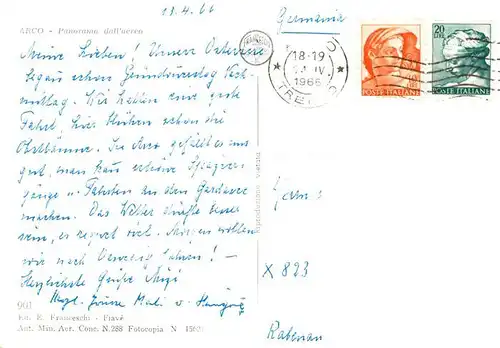 13.4.66
Germania
ARCO - Panorama dall'aereo
18-19
IV
1966
POSTE ITALIANE
20
LIRE
POSTE ITALIANE
Meine Lieben! Unsere Osterreise
begann schon Gründonnerstag
mittag. Wir hatten eine gute
Fahrt, hier blühen schon die
Obstbäume. In Arco gefällt es uns
gut, man kann schöne Spazier-
gänge u. Fahrten an den Gardasee
machen. Das Wetter dürfte besser
sein, es regnet viel. Morgen wollen
wir nach Venedig fahren! -
Herzlichste Grüße
Fam.
X 823
Rabenau
Riproduzione vietata
901
Ed. R. Franceschi - Fiavé
Aut. Min. Aer. Conc. N.288 Fotocopia N